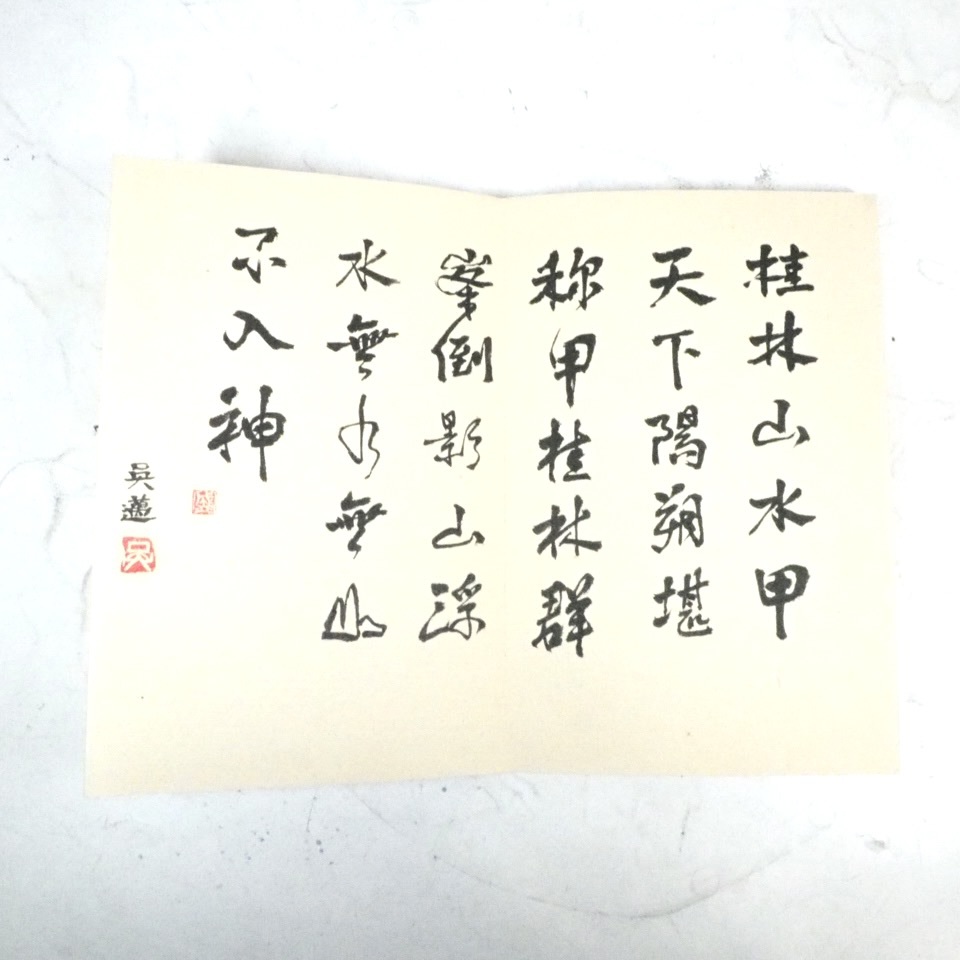 桂林山水甲
天下陽朔堪
称甲桂林群
峯倒影山浮
水無水無山
不入神
吳邁
吳